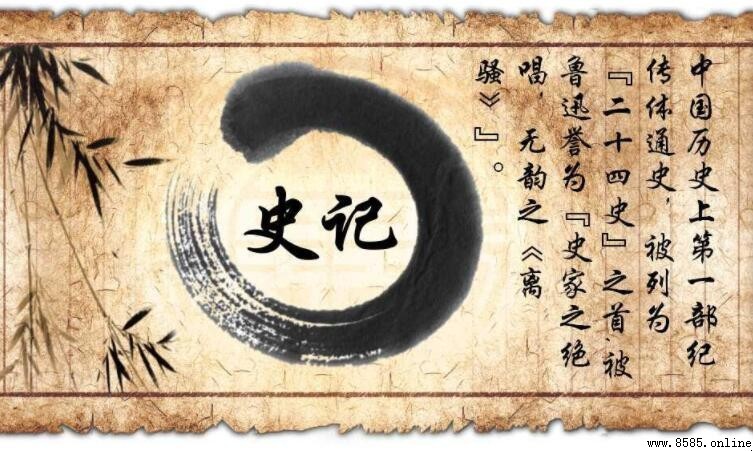 史记
中国历史上第一部纪
传体通史，被列为
『二十四史』之首，被
鲁迅誉为『史家之绝
唱，无韵之《离
骚》』。
www.8585.online